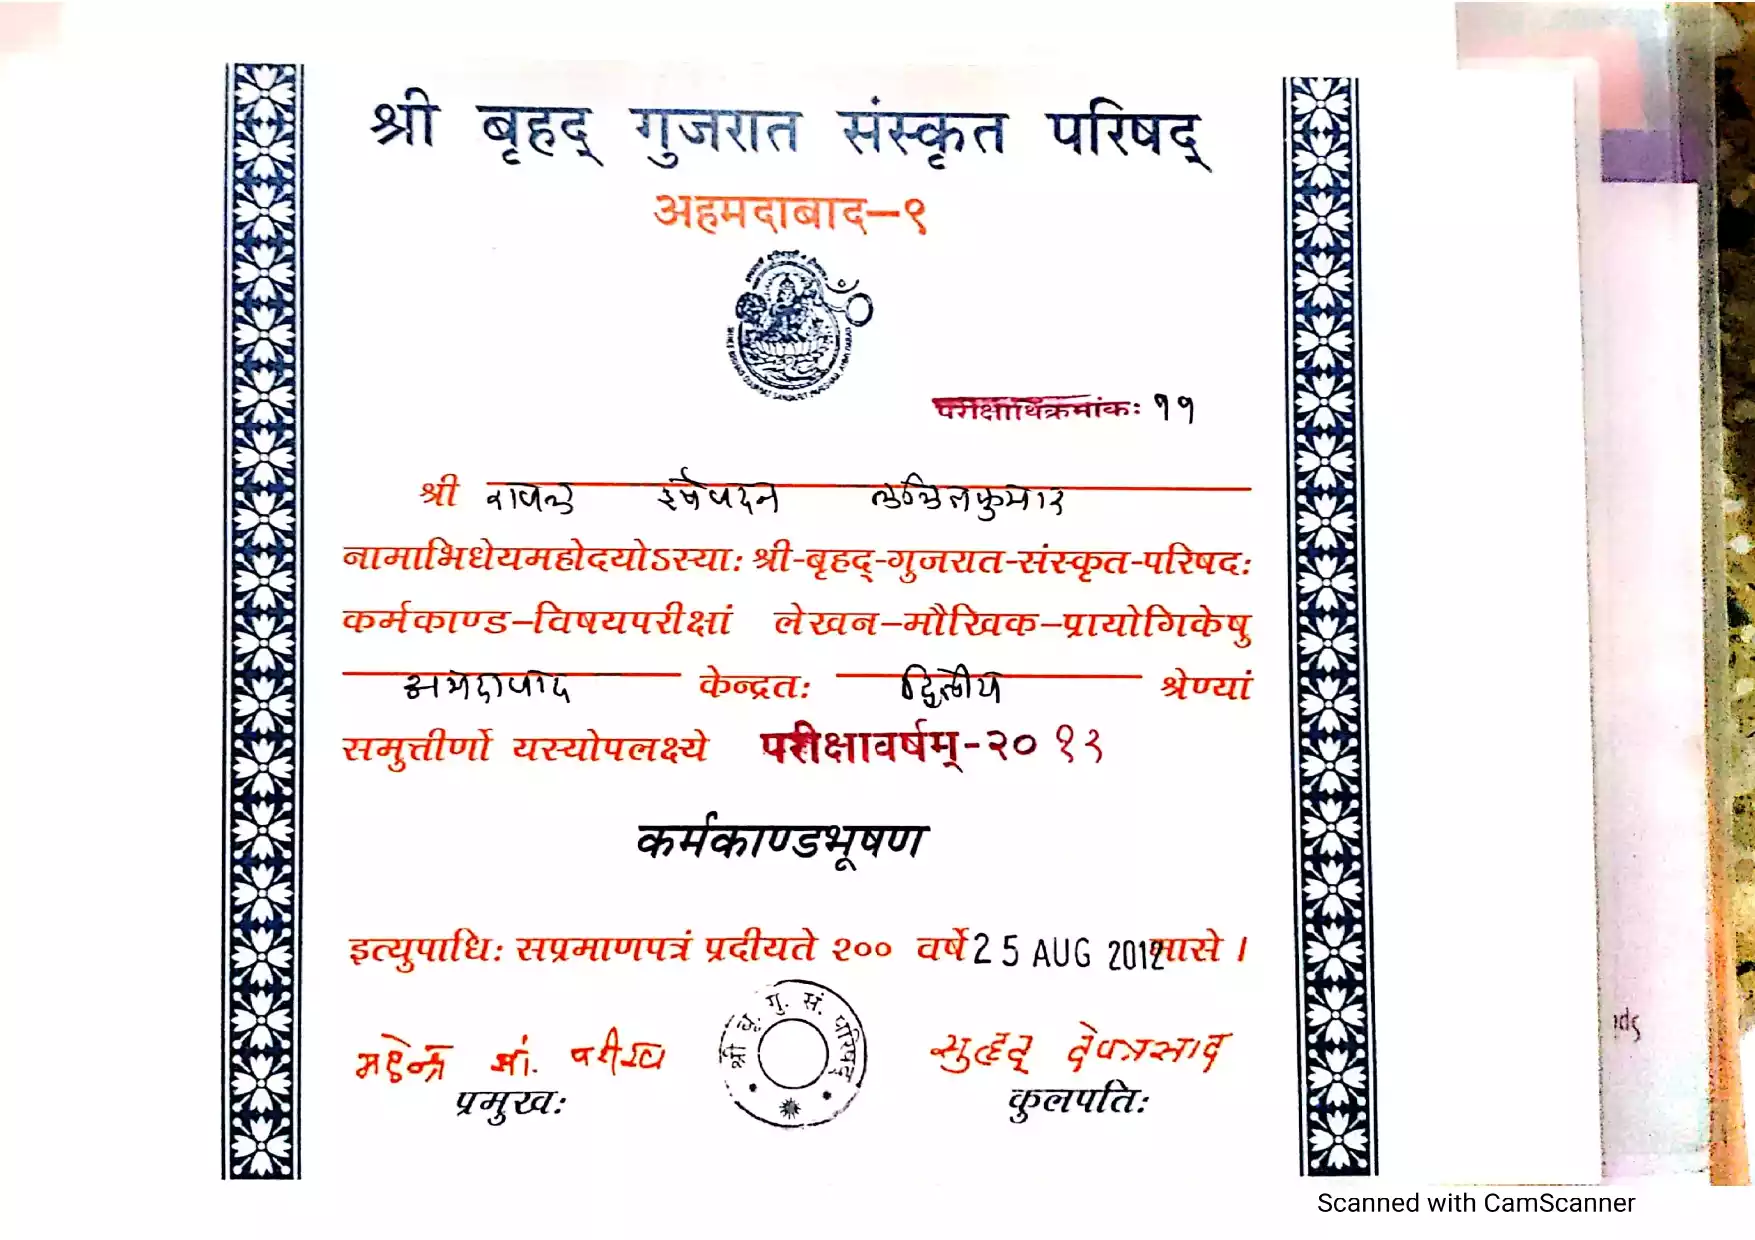 श्री बृहद् गुजरात संस्कृत परिषद्
अहमदाबाद–९
परीक्षार्थिक्रमांकः ११
श्री हर्षवदन ललितकुमार
नामाभिधेयमहोदयोऽस्याः श्री-बृहद्-गुजरात-संस्कृत-परिषदः
कर्मकाण्ड–विषयपरीक्षां लेखन–मौखिक–प्रायोगिकेषु
अमदावाद केन्द्रतः द्वितीय श्रेण्यां
समुत्तीर्णो यस्योपलक्ष्ये परीक्षावर्षम्-२०१२
कर्मकाण्डभूषण
इत्युपाधिः सप्रमाणपत्रं प्रदीयते २०० वर्षे 25 AUG 2012 मासे ।
श्री बृ. गु. सं. परिषद्
महेन्द्र सुहृद् देवप्रसाद
प्रमुखः कुलपतिः
Scanned with CamScanner